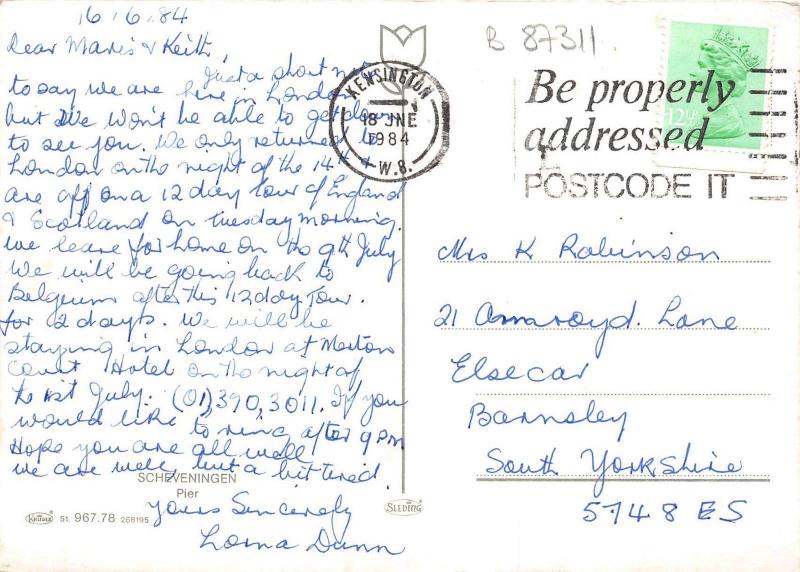 16.6.84
Dear Mavis & Keith,
Just a short note
to say we are here in London
but we won't be able to get down
to see you. We only returned to
London on the night of the 14th &
are off on a 12 day tour of England
& Scotland on Tuesday morning.
We leave for home on the 9th July
We will be going back to
Belgium after this 12 day Tour.
for 2 days. We will be
staying in London at Merton
Court Hotel on the night of
the 1st July. (01) 390,3011. If you
would like to ring after 9 pm
Hope you are all well
we are well, but a bit tired.
Yours Sincerely
Lorna Dunn
SCHEVENINGEN
Pier
KRÜGER 51. 967.78 268195
SLEDING
B 87311
KENSINGTON
18 JNE
1984
W.8.
Be properly
addressed
POSTCODE IT
12½P
Mrs K Robinson
21 Armroyd. Lane
Elsecar
Barnsley
South Yorkshire
S748ES